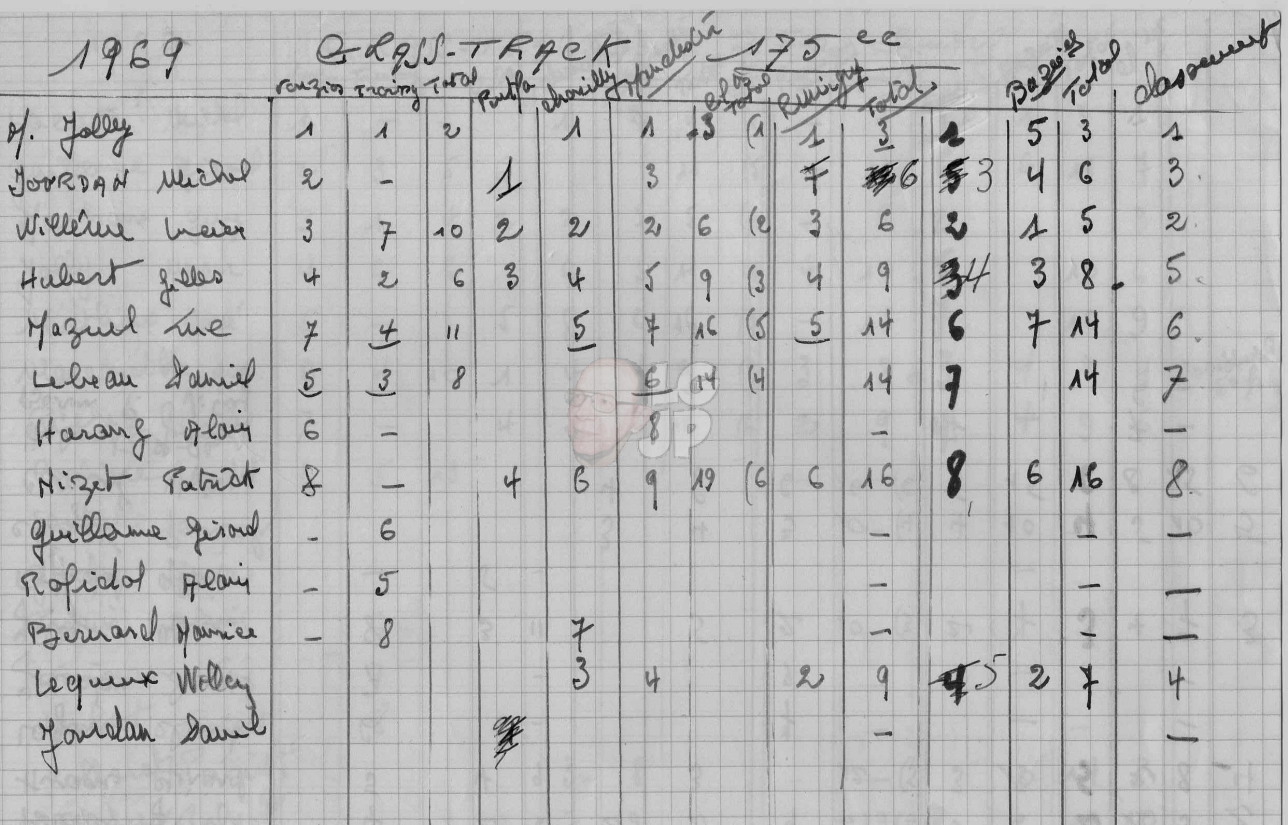 1969 GRASS-TRACK 175 cc
Total Chamilly Total Total Bazies Total classement
M. Jolly 1 1 2 1 1 3 (1 1 3 1 5 3 1
JOURDAN Michel 2 - 1 3 7 6 3 4 6 3
Willême 3 7 10 2 2 2 6 (2 3 6 2 1 5 2
Hubert Gilles 4 2 6 3 4 5 9 (3 4 9 4 3 8 5
Mazuel Luc 7 4 11 5 7 16 (5 5 14 6 7 14 6
Lebeau Daniel 5 3 8 6 14 (4 14 7 14 7
Harang Alain 6 - 8 - -
Nizet Patrick 8 - 4 6 9 19 (6 6 16 8 6 16 8
Guillaume Gérard - 6 - - -
Rofidal Alain - 5 - - -
Bernard Maurice - 8 7 - - -
Lequeux Willy 3 4 2 9 5 2 7 4
Jourdan Daniel - -